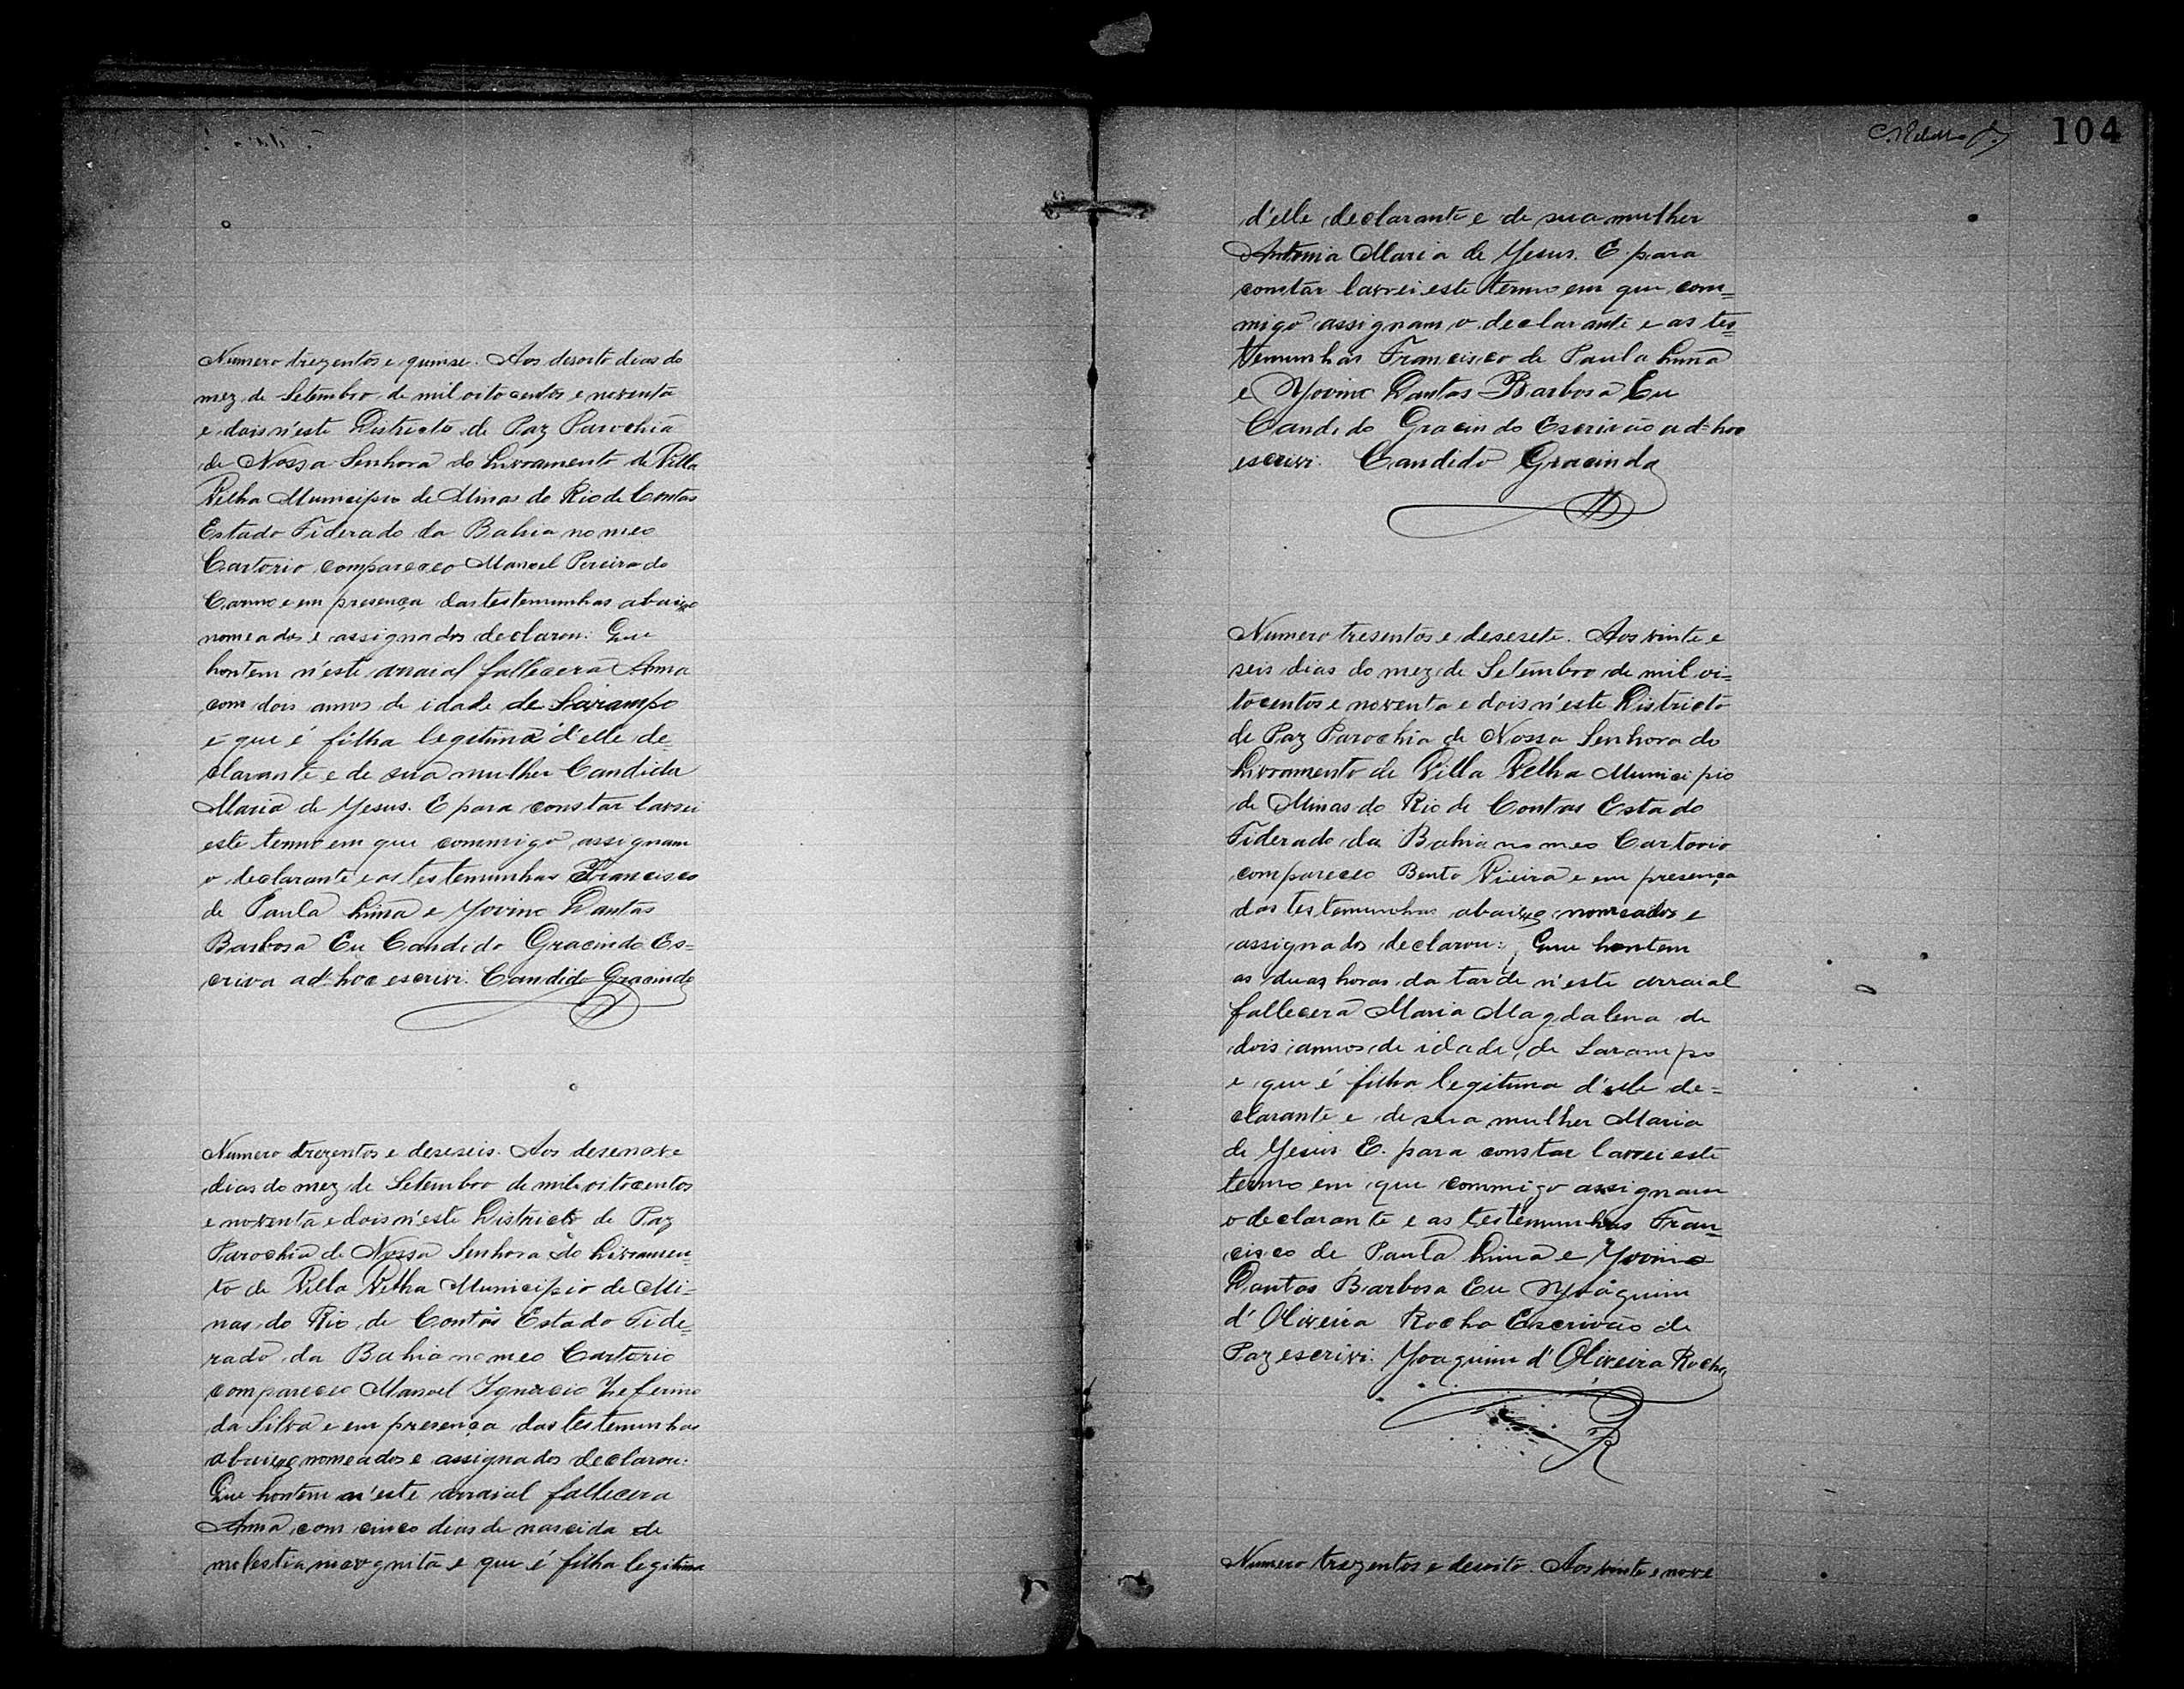 Numero trezentos e quinse. Aos desoito dias do
mez de Setembro de mil oito centos e noventa
e dois n'este Districto de Paz Parochia
de Nossa Senhora do Livramento de Villa
Velha Municipio de Minas do Rio de Contas
Estado Fiderado da Bahia no meo
Cartorio compareceo Manoel Pereira do
Carmo e em presença das testemunhas abaixo
nomeados e assignados declarou: Que
hontem n'este arraial fallecera Anna
com dois annos de idade de Sarampo
e que é filha legitima d'elle de-
clarante e de sua mulher Candida
Maria de Yesus. E para constar lavrei
este termo em que commigo assignam
o declarante e as testemunhas Francisco
de Paula Lima e Yovino Dantas
Barbosa Eu Candido Gracindo Es=
criva ad-hoc escrivi. Candido Gracindo
Numero trezentos e deseseis. Aos desenove
dias do mez de Setembro de mil oitocentos
e noventa e dois n'este Districto de Paz
Parochia de Nossa Senhora do Livramen=
to de Villa Velha Municipio de Mi=
nas do Rio de Contas Estado Fide=
rado da Bahia no meo Cartorio
compareceo Manoel Ignacio Zeferino
da Silva e em presença das testemunhas
abaixo nomeados e assignados declarou:
Que hontem n'este arraial fallecera
Anna com cinco dias de nascida de
molestia e que é filha legitima
104
d'elle declarante e de sua mulher
Antonia Maria de Yesus. E para
constar lavrei este termo em que com=
migo assignam o declarante e as tes=
temunhas Francisco de Paula Lima
e Yovino Dantas Barbosa Eu
Candido Gracindo Escrivão ad=hoc
escrivi. Candido Gracindo
Numero tresentos e desesete. Aos vinte e
seis dias do mez de Setembro de mil oi=
tocentos e noventa e dois n'este Districto
de Paz Parochia de Nossa Senhora do
Livramento de Villa Velha Municipio
de Minas do Rio de Contas Estado
Fiderado da Bahia no meo Cartorio
compareceo Bento Vieira e em presença
das testemunhas abaixo nomeados e
assignados declarou: Que hontem
as duas horas da tarde n'este arraial
fallecera Maria Magdalena de
dois annos de idade, de Sarampo
e que é filha legitima d'elle de=
clarante e de sua mulher Maria
de Yesus E. para constar lavrei este
termo em que commigo assignam
o declarante e as testemunhas Fran=
cisco de Paula Lima e Yovino
Dantas Barbosa Eu Yoaquim
d'Oliveira Rocha Escrivão de
Paz escrivi. Yoaquim d'Oliveira Rocha
Numero trezentos e desoito. Aos vinte e nove